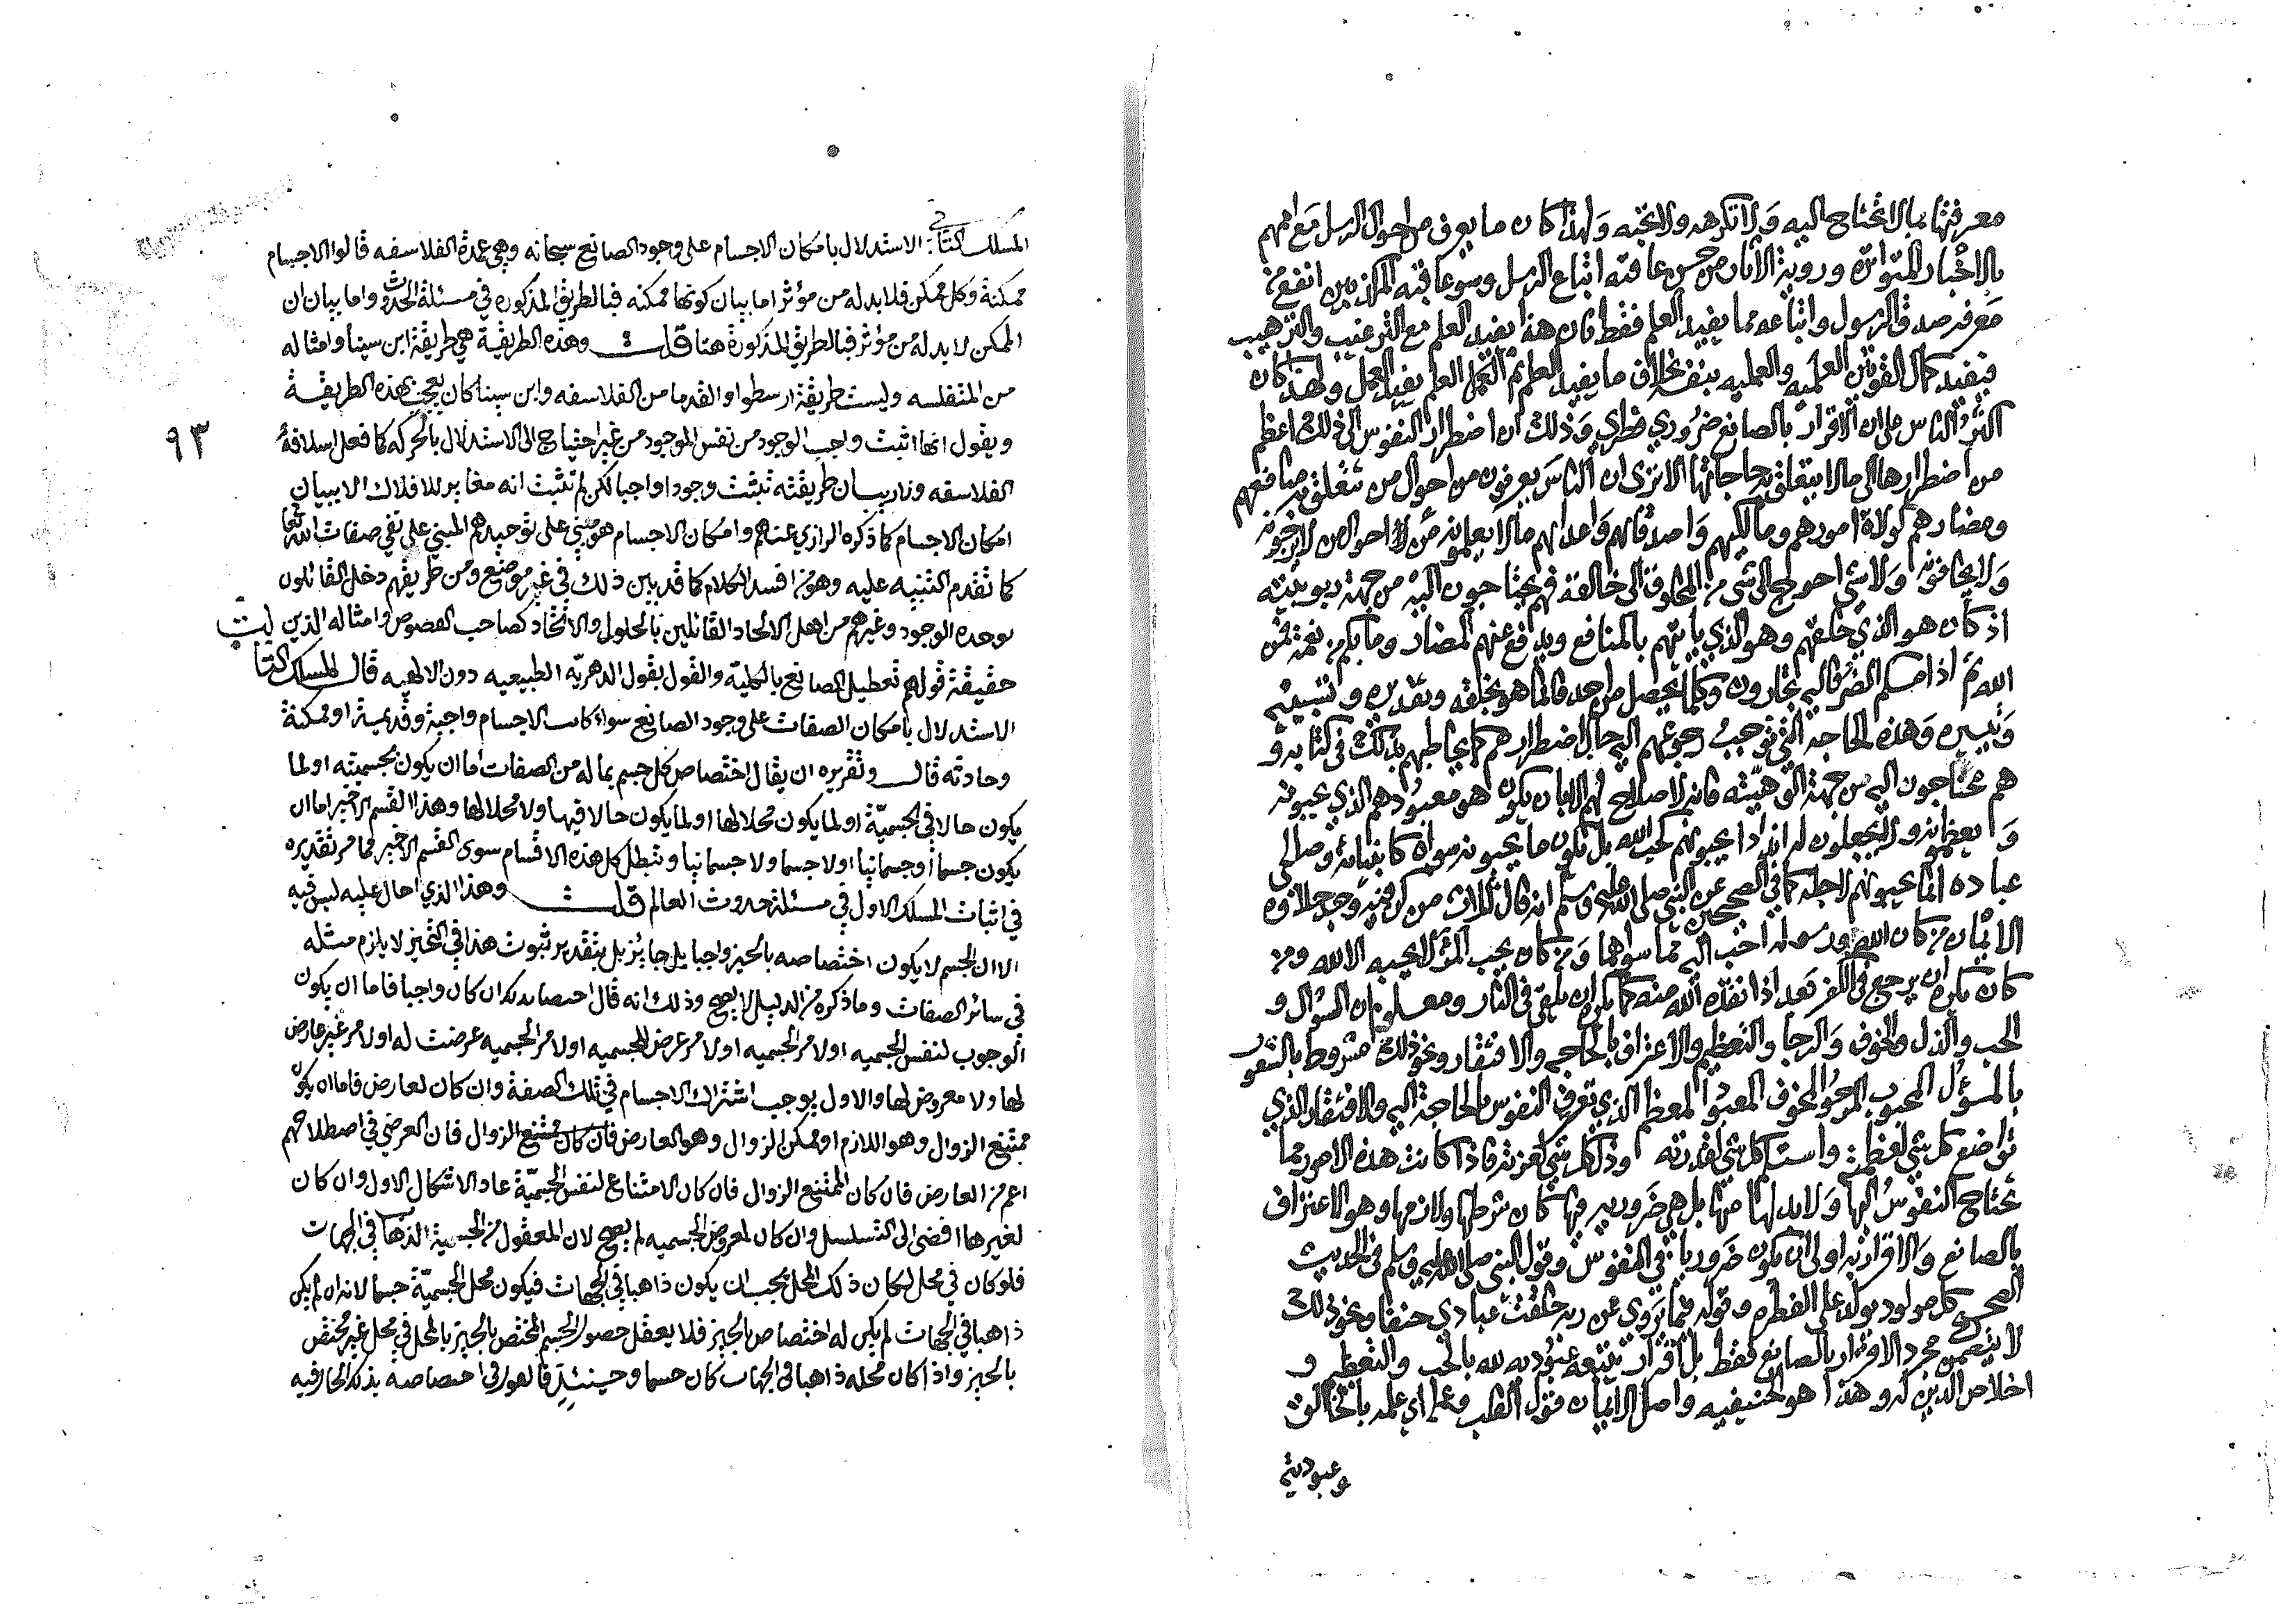 معرفتها بما لا تحتاج اليه ولا تكرهه ولا تحبه ولهذا كان ما يعرف من احوال الرسل مع اممهم
بالاخبار المتواترة وروية الاثار من حسن عاقبة اتباع الرسل وسوء عاقبة المكذبين انفع من
معرفة صدق الرسول واتباعه مما يفيد العلم فقط فان هذا يفيد العلم مع الترغيب والترهيب
فيفيد كمال القوتين العلميه والعمليه بنفسه بخلاف ما يفيد العلم ثم العلم يفيد العمل ولهذا كان
اكثر الناس على ان الاقرار بالصانع ضروري فطري وذلك ان اضطرار النفوس الى ذلك اعظم
من اضطرارها الى ما لا يتعلق به حاجاتها الا ترى ان الناس يعرفون من احوال من تتعلق به منافعهم
ومضارهم كولاة امورهم ومماليكهم واصدقائهم واعدائهم ما لا يعلمونه من احوال من لا يرجونه
ولا يخافونه ولا شي احوج الى شي من المخلوق الى خالقه فهم يحتاجون اليه من جهة ربوبيته
اذ كان هو الذي خلقهم وهو الذي ياتيهم بالمنافع ويدفع عنهم المضار وما بكم من نعمة فمن
الله ثم اذا مسكم الضر فاليه تجارون وكلما يحصل من احد فانما هو بخلقه وتقديره وتسبيبه
وتيسيره وهذه الحاجة التي توجب رجوعهم اليه حال اضطرارهم كما يخاطبهم بذلك في كتابه و
هم محتاجون اليه من جهة الوهيته فانه لا صلاح لهم الا بان يكون هو معبودهم الذي يحبونه
و يعظمونه ولا يجعلون له اندادا يحبونهم كحب الله بل يكون ما يحبونه سواه كانبيائه وصالحي
عباده انما يحبونهم لاجله كما في الصحيحين عن النبي صلى الله عليه وسلم انه قال ثلاث من كن فيه وجد حلاوة
الايمان من كان الله ورسوله احب اليه مما سواهما ومن كان يحب المرء لا يحبه الا لله ومن
كان يكره ان يرجع في الكفر بعد اذ انقذه الله منه كما يكره ان يلقى في النار ومعلوم ان السؤال و
الحب والذل والخوف والرجا والتعظيم والاعتراف بالحاجه والافتقار ونحو ذلك مشروط بالشعور
بالمسؤل المحبوب المرجو المخوف المعبود المعظم الذي تعرف النفوس بالحاجة اليه والافتقار الذي
تواضع كل شي لعظمته واستسلم كل شي لقدرته وذل كل شي لعزته فاذا كانت هذه الامور مما
تحتاج النفوس اليها ولا بد لها منها بل هي ضروريه فيها كان شرطها ولازمها وهو الاعتراف
بالصانع والاقرار به اولى ان يكون ضروريا في النفوس وقول النبي صلى الله عليه وسلم في الحديث
الصحيح كل مولود يولد على الفطره وقوله فيما يروي عن ربه خلقت عبادي حنفا ونحو ذلك
لا يتضمن مجرد الاقرار بالصانع فقط بل اقرار يتبعه عبوديه لله بالحب والتعظيم و
اخلاص الدين له وهذا هو الحنيفيه واصل الايمان قول القلب وعمله اي علمه بالخالق
وعبوديته
المسلك الثاني الاستدلال بامكان الاجسام على وجود الصانع سبحانه وهي عمدة الفلاسفه قالوا الاجسام
ممكنة وكل ممكن فلا بد له من مؤثر اما بيان كونها ممكنه فبالطريق المذكوره في مسئلة الحدوث واما بيان ان
الممكن لا بد له من مؤثر فبالطريق المذكورة هنا قلت وهذه الطريقة هي طريقة ابن سينا وامثاله
من المتفلسه وليست طريقة ارسطوا والقدما من الفلاسفه وابن سينا كان يعجب بهذه الطريقة
ويقول انها اثبت واجب الوجود من نفس الوجود من غير احتياج الى الاستدلال بالحركه كما فعل اسلافه
٩٣
الفلاسفه ولا ريب ان طريقته تثبت وجودا واجبا لكن لم تثبت انه مغاير للافلاك الا ببيان
امكان الاجسام كما ذكره الرازي عنهم وامكان الاجسام هو مبني على توحيدهم المبني على نفي صفات الله تعا
كما تقدم التنبيه عليه وهو من افسد الكلام كما قد بين ذلك في غير موضع ومن طريقهم دخل القائلون
بوحده الوجود وغيرهم من اهل الالحاد القائلين بالحلول والاتحاد كصاحب الفصوص وامثاله الذين
حقيقة قولهم تعطيل الصانع بالكلية والقول بقول الدهريه الطبيعيه دون الالهيه قال المسلك الثالث
الاستدلال بامكان الصفات على وجود الصانع سواء كانت الاجسام واجبة وقديمة او ممكنة
وحادثه قال وتقريره ان يقال اختصاص كل جسم بما له من الصفات اما ان يكون لجسميته او لما
يكون حالا في الجسمية او لما يكون محلا لها او لما يكون حالا فيها ولا محلا لها وهذا القسم الاخير اما ان
يكون جسما او جسمانيا او لا جسما ولا جسمانيا وتبطل كل هذه الاقسام سوى القسم الاخير بما مر تقديره
في اثبات المسلك الاول في مسئلة حدوث العالم قلت وهذا الذي احال عليه ليس فيه
الا ان الجسم لا يكون اختصاصه بالحيز واجبا بل جايز بل بتقدير ثبوت هذا في التحيز لا يلزم مثله
في سائر الصفات وما ذكره من الدليل لا يصح وذلك انه قال اختصاصه بذلك ان كان واجبا فاما ان يكون
الوجوب لنفس الجسميه او لامر للجسميه او لامر عرض للجسميه او لامر الجسميه عرضت له او لامر غير عارض
لها ولا معروض لها والاول يوجب اشتراك الاجسام في تلك الصفة وان كان لعارض فاما ان يكون
ممتنع الزوال وهو اللازم او ممكن الزوال وهو العارض فان كان ممتنع الزوال فان العرضي في اصطلاحهم
اعم من العارض فان كان الممتنع الزوال فان كان الامتناع لنفس الجسمية عاد الاشكال الاول وان كان
لغيرها افضى الى التسلسل وان كان لمعروض الجسميه لم يصح لان المعقول من الجسمية الذهاب في الجهات
فلو كان في محل لكان ذلك المحل يجب ان يكون ذاهبا في الجهات فيكون محل الجسمية جسما لانه ان لم يكن
ذاهبا في الجهات لم يكن له اختصاص بالحيز فلا يعقل حصول الجسم المختص بالحيز بالمحل في محل غير مختص
بالحيز واذا كان محله ذاهبا في الجهات كان جسما وحينئذ فالقول في اختصاصه بذلك الحال فيه